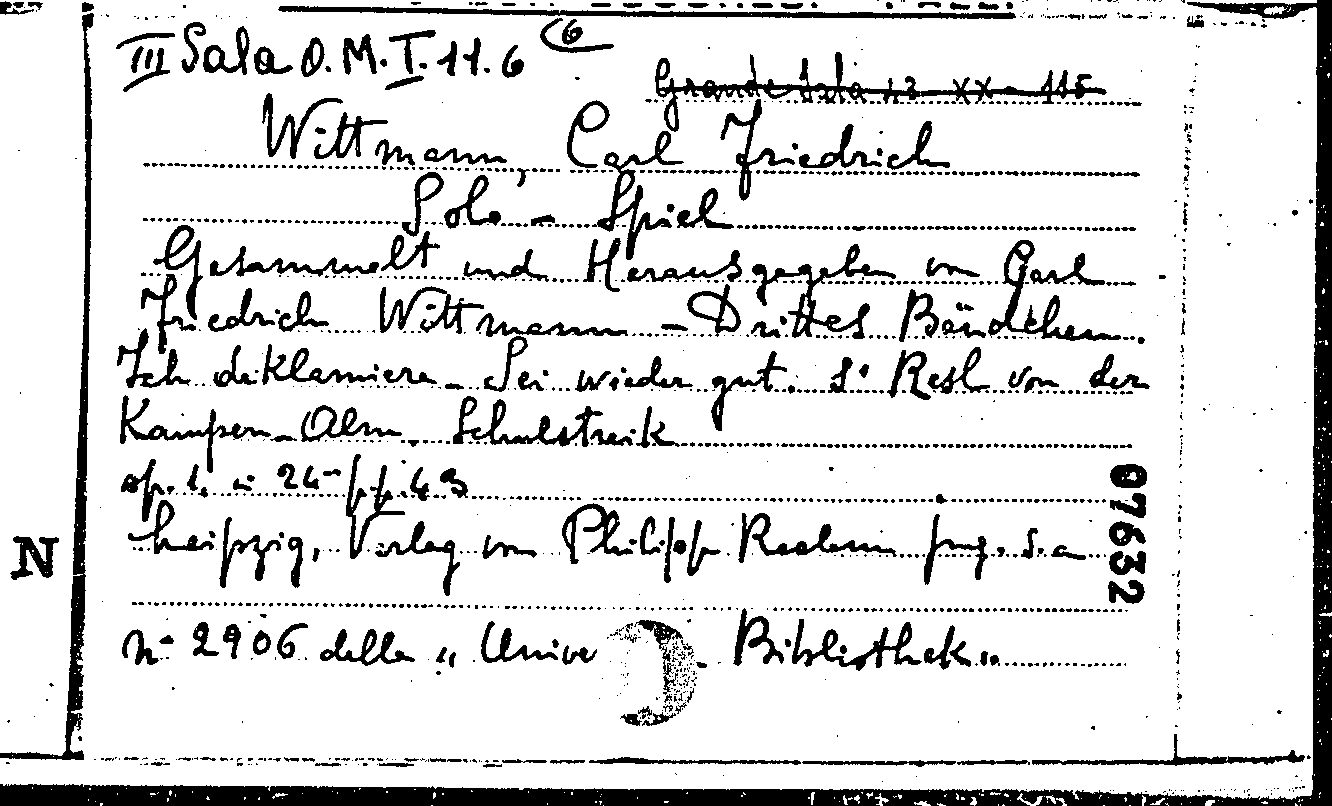 III Sala O.M.I.11.6 (6
Grande Sala 23-XX-115
Wittmann, Carl Friedrich
Solo-Spiel
Gesammelt und Herausgegeben von Carl
Friedrich Wittmann - Drittes Bändchen.
Ich deklamiere - Sei wieder gut. S' Resl von der
Kampen-Alm. Schulstreik
op. 1. in 24- pp. 43
Leipzig, Verlag von Philipp Reclam jung. s.a
07632
N
n- 2906 della „ Unive - Bibliothek"